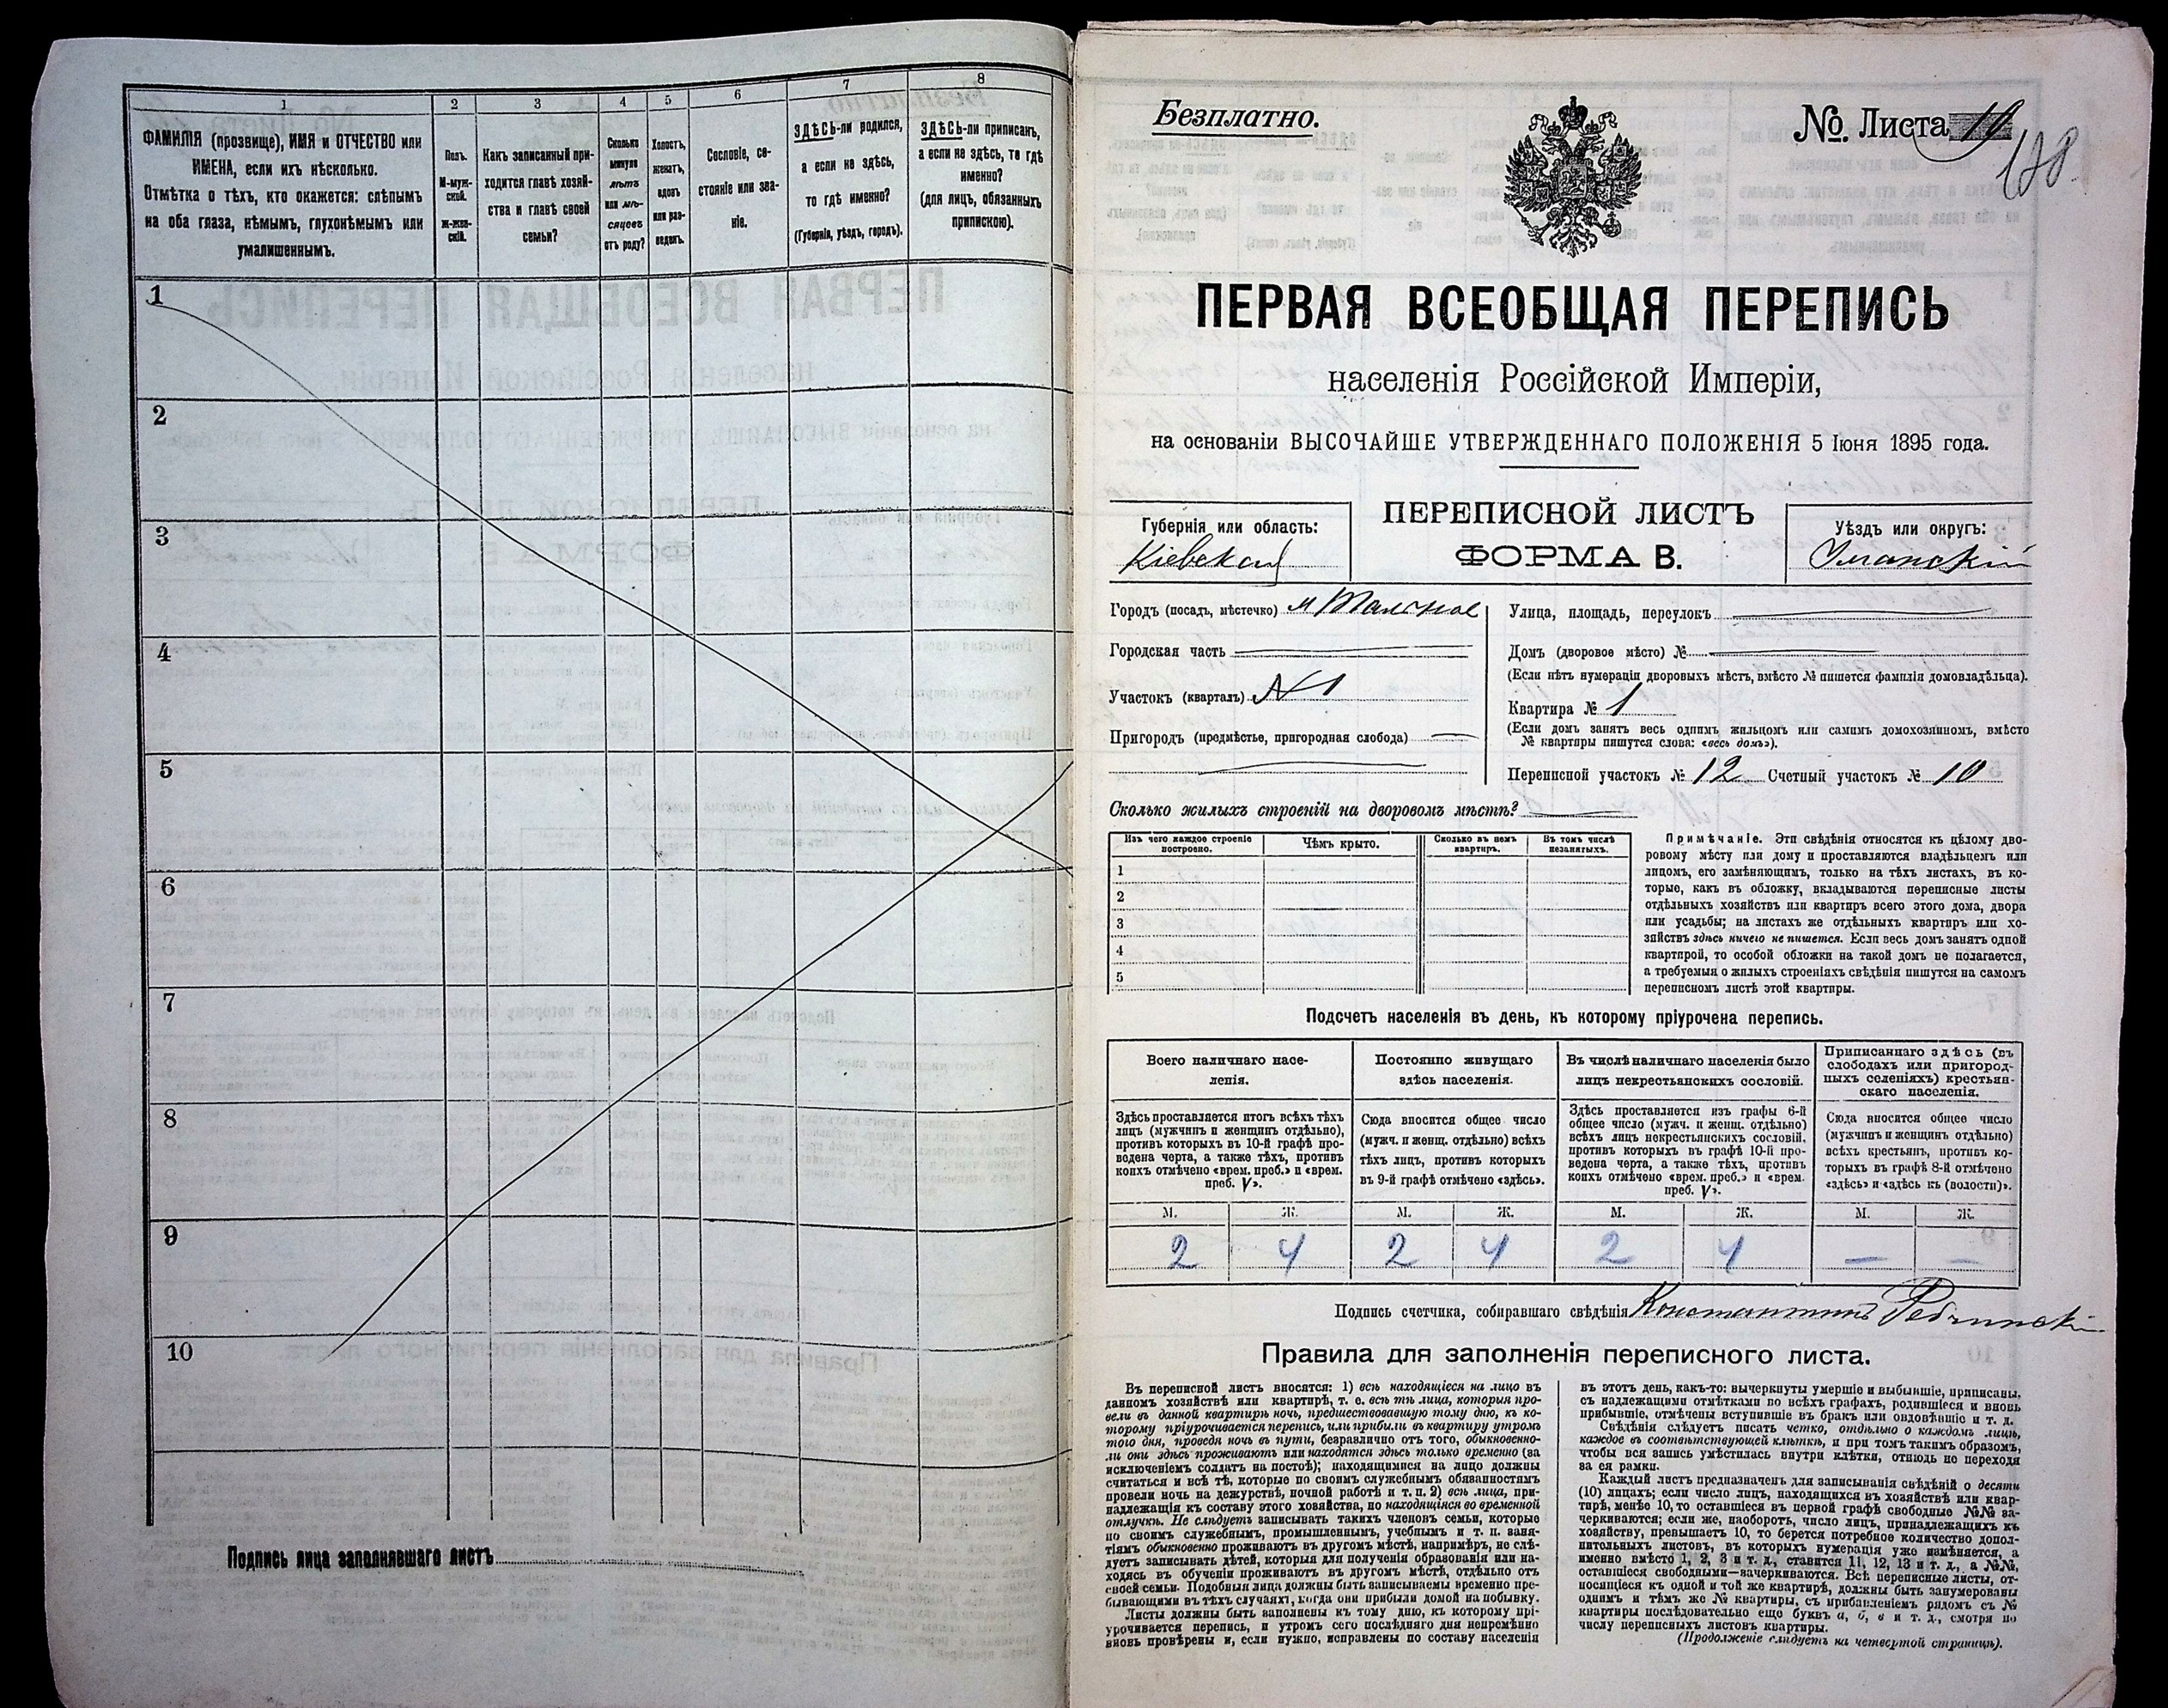 1
2
3
4
5
6
7
8
ФАМИЛІЯ (прозвище), ИМЯ и ОТЧЕСТВО или
ИМЕНА, если ихъ нѣсколько.
Отмѣтка о тѣхъ, кто окажется: слѣпымъ
на оба глаза, нѣмымъ, глухонѣмымъ или
умалишеннымъ.
Полъ.
М-муж-
ской.
Ж-жен-
скій.
Какъ записанный при-
ходится главѣ хозяй-
ства и главѣ своей
семьи?
Сколько
минуло
лѣтъ
или мѣ-
сяцевъ
отъ роду?
Холостъ,
женатъ,
вдовъ
или раз-
веденъ.
Сословіе, со-
стояніе или зва-
ніе.
ЗДѢСЬ-ли родился,
а если не здѣсь,
то гдѣ именно?
(Губернія, уѣздъ, городъ).
ЗДѢСЬ-ли приписанъ,
а если не здѣсь, то гдѣ
именно?
(для лицъ, обязанныхъ
припискою).
1
2
3
4
5
6
7
8
9
10
Подпись лица заполнявшаго листъ
Безплатно.
№ Листа 10
178.
ПЕРВАЯ ВСЕОБЩАЯ ПЕРЕПИСЬ
населенія Россійской Имперіи,
на основаніи ВЫСОЧАЙШЕ УТВЕРЖДЕННАГО ПОЛОЖЕНІЯ 5 Іюня 1895 года.
Губернія или область:
Кіевская
ПЕРЕПИСНОЙ ЛИСТЪ
ФОРМА В.
Уѣздъ или округъ:
Уманскій
Городъ (посадъ, мѣстечко) м Тальное
Городская часть
Участокъ (кварталъ) N 1
Пригородъ (предмѣстье, пригородная слобода)
Улица, площадь, переулокъ
Домъ (дворовое мѣсто) №
(Если нѣтъ нумераціи дворовыхъ мѣстъ, вмѣсто № пишется фамилія домовладѣльца).
Квартира № 1
(Если домъ занятъ весь однимъ жильцомъ или самимъ домохозяиномъ, вмѣсто
№ квартиры пишутся слова: «весь домъ»).
Переписной участокъ № 12 Счетный участокъ № 10
Сколько жилыхъ строеній на дворовомъ мѣстѣ?
Изъ чего каждое строеніе
построено.
Чѣмъ крыто.
Сколько въ немъ
квартиръ.
Въ томъ числѣ
незанятыхъ.
1
2
3
4
5
Примѣчаніе. Эти свѣдѣнія относятся къ цѣлому дво-
ровому мѣсту или дому и проставляются владѣльцемъ или
лицомъ, его замѣняющимъ, только на тѣхъ листахъ, въ ко-
торые, какъ въ обложку, вкладываются переписные листы
отдѣльныхъ хозяйствъ или квартиръ всего этого дома, двора
или усадьбы; на листахъ же отдѣльныхъ квартиръ или хо-
зяйствъ здѣсь ничего не пишется. Если весь домъ занятъ одной
квартирой, то особой обложки на такой домъ не полагается,
а требуемыя о жилыхъ строеніяхъ свѣдѣнія пишутся на самомъ
переписномъ листѣ этой квартиры.
Подсчетъ населенія въ день, къ которому пріурочена перепись.
Всего наличнаго насе-
ленія.
Постоянно живущаго
здѣсь населенія.
Въ числѣ наличнаго населенія было
лицъ некрестьянскихъ сословій.
Приписаннаго здѣсь (въ
слободахъ или пригород-
ныхъ селеніяхъ) крестьян-
скаго населенія.
Здѣсь проставляется итогъ всѣхъ тѣхъ
лицъ (мужчинъ и женщинъ отдѣльно),
противъ которыхъ въ 10-й графѣ про-
ведена черта, а также тѣхъ, противъ
коихъ отмѣчено «врем. преб.» и «врем.
преб. V».
Сюда вносится общее число
(мужч. и женщ. отдѣльно) всѣхъ
тѣхъ лицъ, противъ которыхъ
въ 9-й графѣ отмѣчено «здѣсь».
Здѣсь проставляется изъ графы 6-й
общее число (мужч. и женщ. отдѣльно)
всѣхъ лицъ некрестьянскихъ сословій,
противъ которыхъ въ графѣ 10-й про-
ведена черта, а также тѣхъ, противъ
коихъ отмѣчено «врем. преб.» и «врем.
преб. V».
Сюда вносится общее число
(мужчинъ и женщинъ отдѣльно)
всѣхъ крестьянъ, противъ ко-
торыхъ въ графѣ 8-й отмѣчено
«здѣсь» и «здѣсь къ (волости)».
М. Ж. М. Ж. М. Ж. М. Ж.
2 4 2 4 2 4 — —
Подпись счетчика, собиравшаго свѣдѣнія Константинъ
Правила для заполненія переписного листа.
Въ переписной листъ вносятся: 1) всѣ находящіеся на лицо въ
данномъ хозяйствѣ или квартирѣ, т. е. всѣ тѣ лица, которыя про-
вели въ данной квартирѣ ночь, предшествовавшую тому дню, къ ко-
торому пріурочивается перепись, или прибыли въ квартиру утромъ
того дня, проведя ночь въ пути, безразлично отъ того, обыкновенно-
ли они здѣсь проживаютъ или находятся здѣсь только временно (за
исключеніемъ солдатъ на постоѣ); находящимися на лицо должны
считаться и всѣ тѣ, которые по своимъ служебнымъ обязанностямъ
провели ночь на дежурствѣ, ночной работѣ и т. п. 2) всѣ лица, при-
надлежащія къ составу этого хозяйства, но находящіяся во временной
отлучкѣ. Не слѣдуетъ записывать такихъ членовъ семьи, которые
по своимъ служебнымъ, промышленнымъ, учебнымъ и т. п. заня-
тіямъ обыкновенно проживаютъ въ другомъ мѣстѣ, напримѣръ, не слѣ-
дуетъ записывать дѣтей, которыя для полученія образованія или на-
ходясь въ обученіи проживаютъ въ другомъ мѣстѣ, отдѣльно отъ
своей семьи. Подобныя лица должны быть записываемы временно пре-
бывающими въ тѣхъ случаяхъ, когда они прибыли домой на побывку.
Листы должны быть заполнены къ тому дню, къ которому прі-
урочивается перепись, и утромъ сего послѣдняго дня непремѣнно
вновь провѣрены и, если нужно, исправлены по составу населенія
въ этотъ день, какъ-то: вычеркнуты умершіе и выбывшіе, приписаны,
съ надлежащими отмѣтками по всѣхъ графахъ, родившіеся и вновь
прибывшіе, отмѣчены вступившіе въ бракъ или овдовѣвшіе и т. д.
Свѣдѣнія слѣдуетъ писать четко, отдѣльно о каждомъ лицѣ,
каждое въ соотвѣтствующей клѣткѣ, и при томъ такимъ образомъ,
чтобы вся запись умѣстилась внутри клѣтки, отнюдь не переходя
за ея рамки.
Каждый листъ предназначенъ для записыванія свѣдѣній о десяти
(10) лицахъ; если число лицъ, находящихся въ хозяйствѣ или квар-
тирѣ, менѣе 10, то оставшіеся въ первой графѣ свободные №№ за-
черкиваются; если же, наоборотъ, число лицъ, принадлежащихъ къ
хозяйству, превышаетъ 10, то берется потребное количество допол-
нительныхъ листовъ, въ которыхъ нумерація уже измѣняется, а
именно вмѣсто 1, 2, 3 и т. д., ставится 11, 12, 13 и т. д., а №№,
оставшіеся свободными—зачеркиваются. Всѣ переписные листы, от-
носящіеся къ одной и той же квартирѣ, должны быть занумерованы
однимъ и тѣмъ же № квартиры, съ прибавленіемъ рядомъ съ №
квартиры послѣдовательно еще буквъ а, б, в и т. д., смотря по
числу переписныхъ листовъ квартиры.
(Продолженіе слѣдуетъ на четвертой страницѣ).